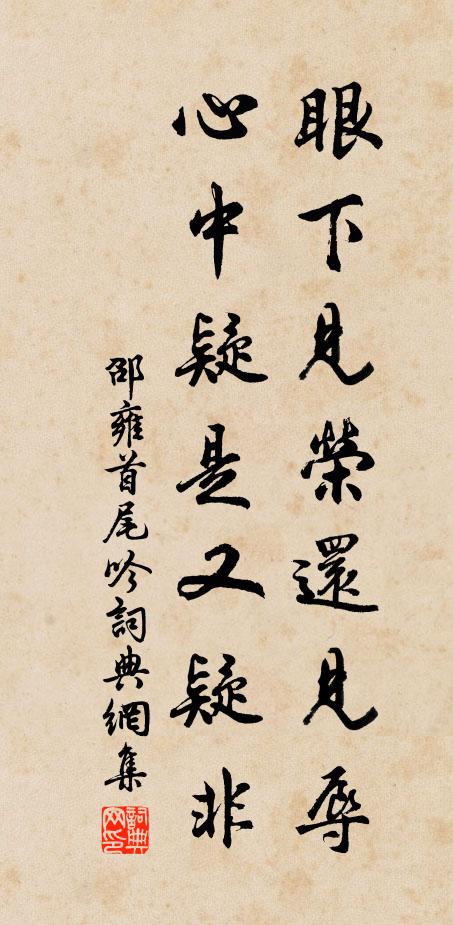 眼下見榮還見辱
心中疑是又疑非
邵雍首尾吟詞典網集
詞典网印